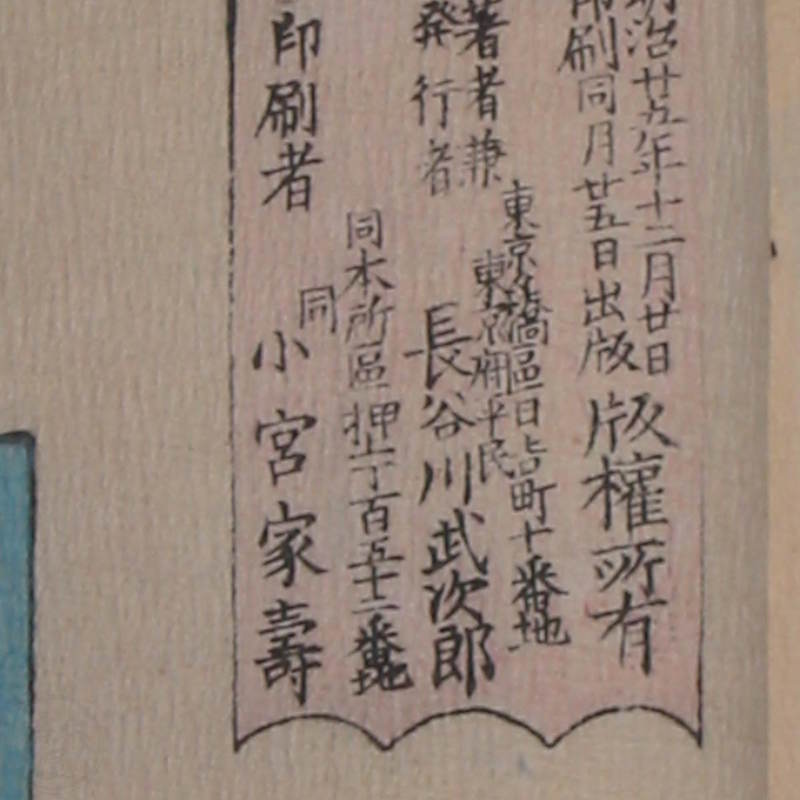 治廿五年十二月廿日
印刷同月廿五日出版
版權所有
著者兼
発行者
東京京橋區日吉町十番地
東京府平民
長谷川武次郎
同本所區押上丁百五十二番地
同
印刷者
小宮家壽